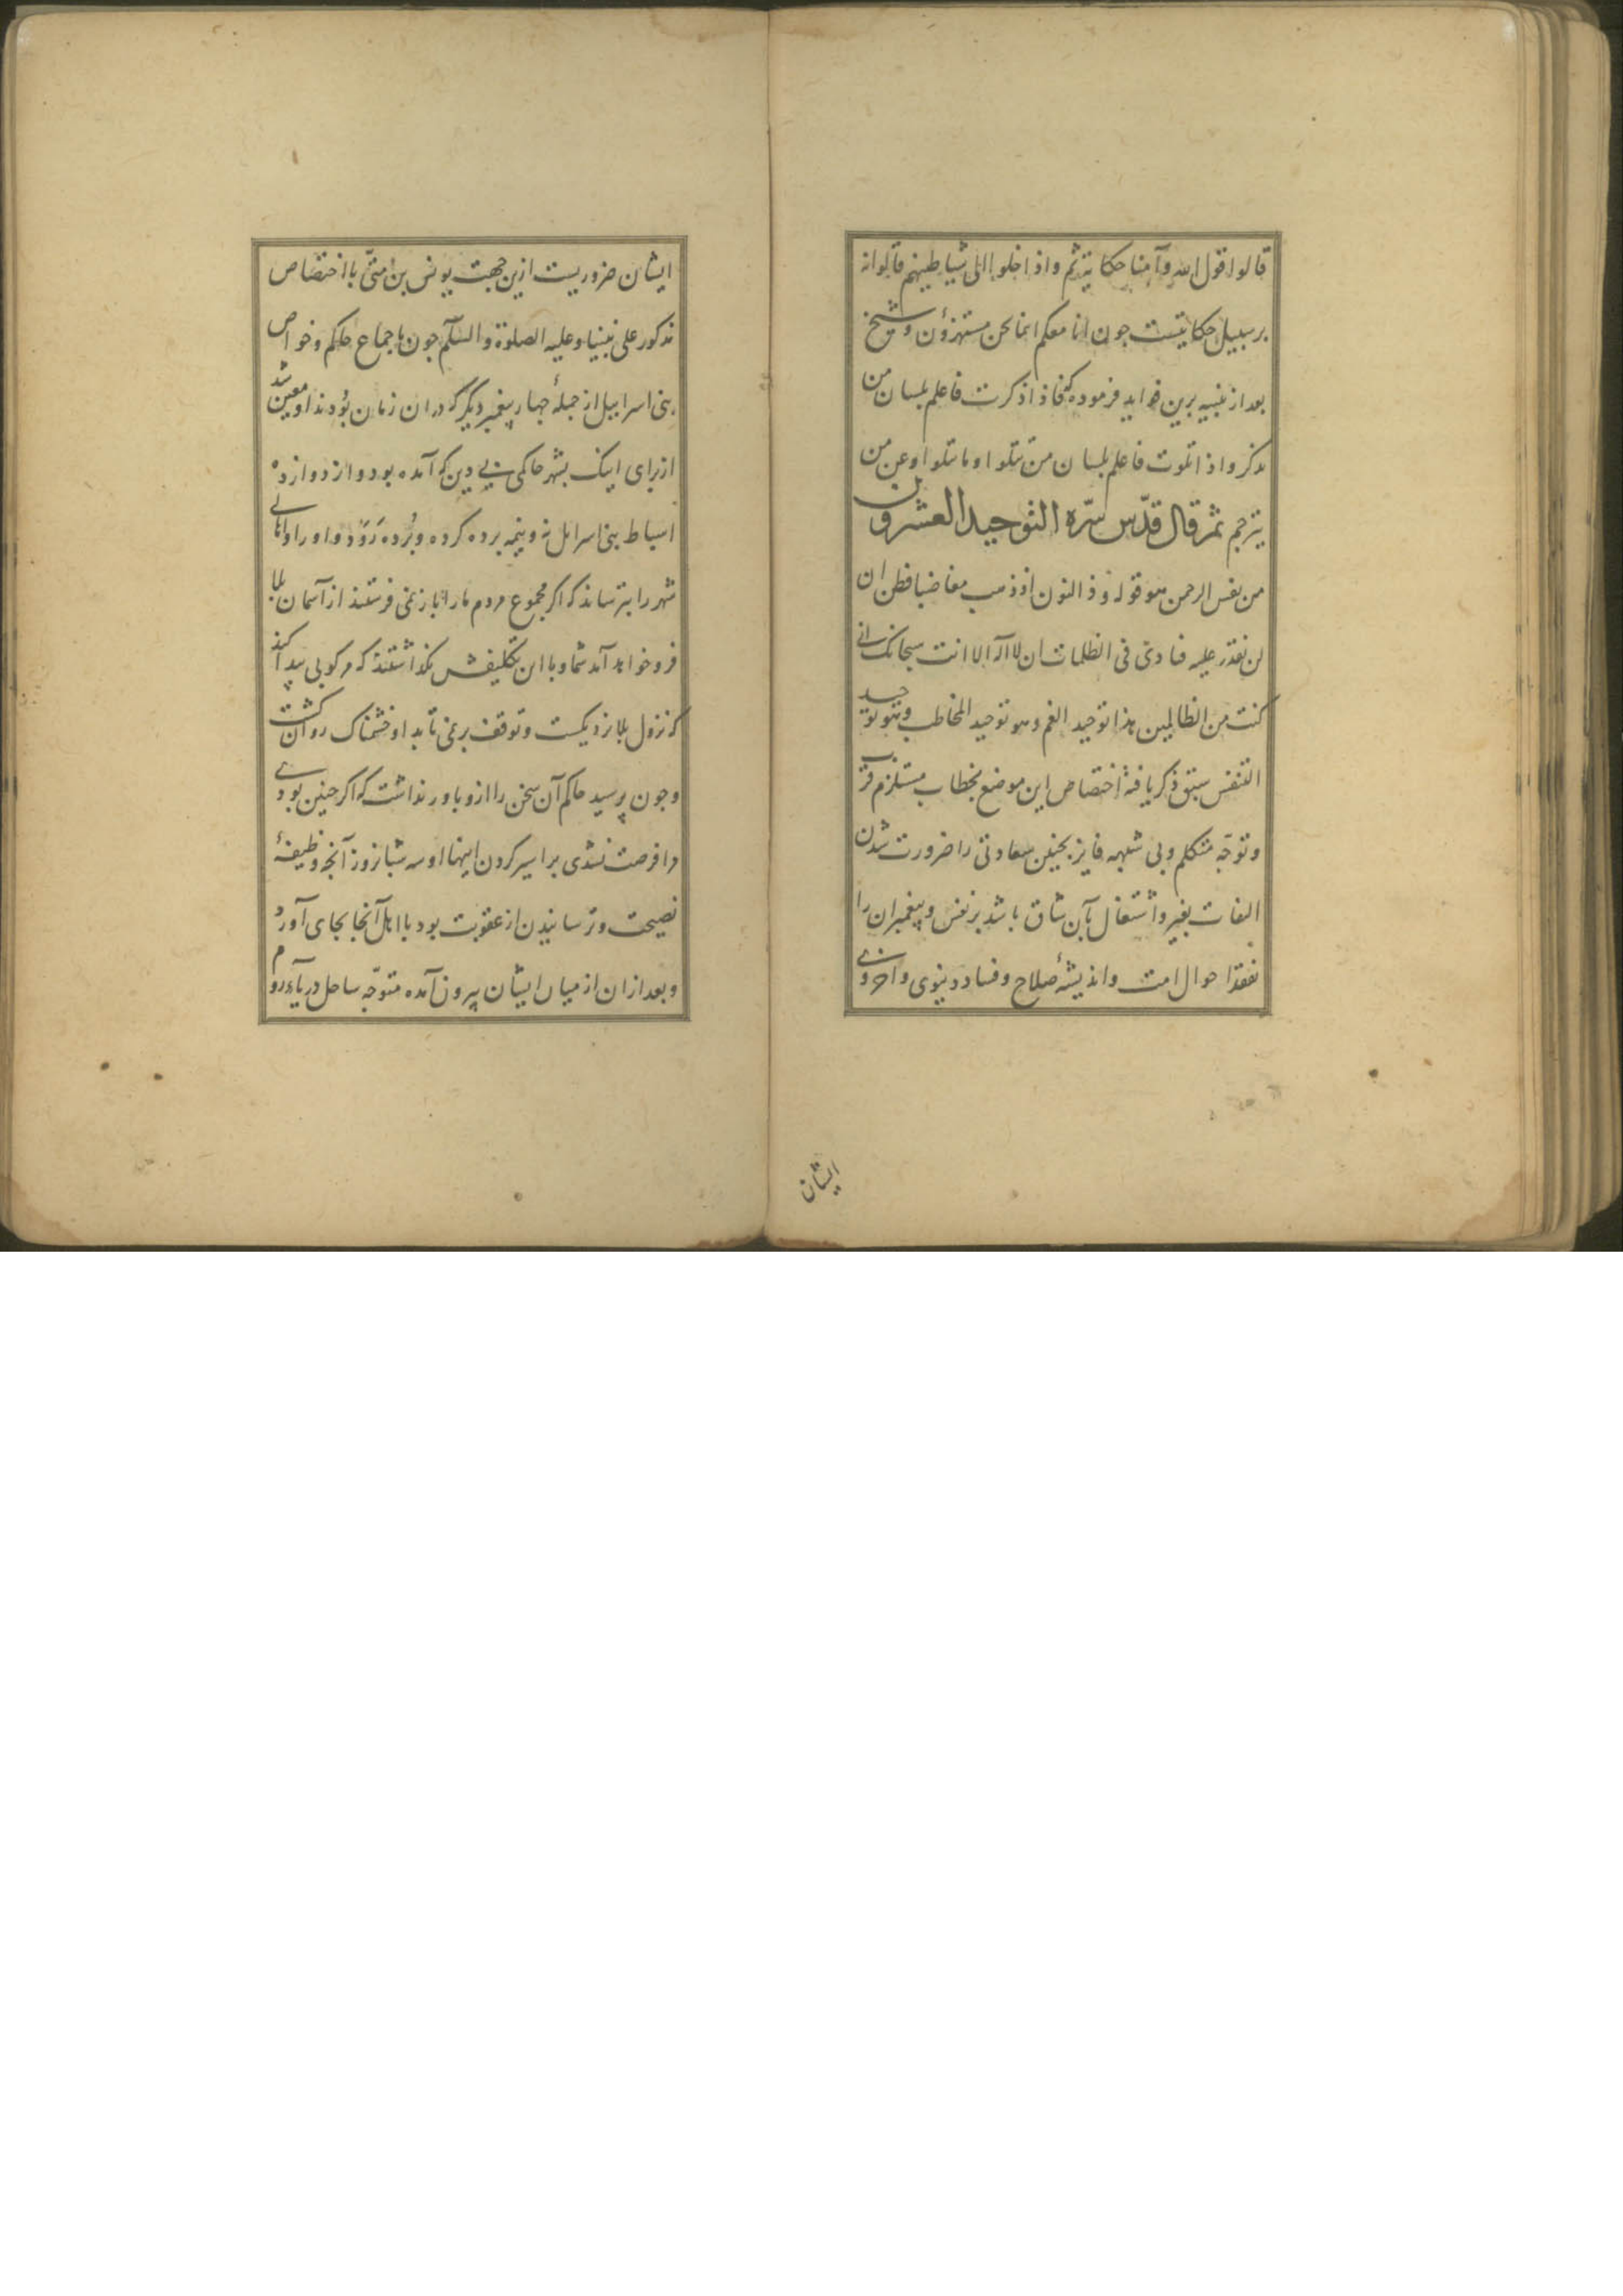 قالوا قول الله وآمنا حکایتند ثم واذا خلوا الی شیاطینهم قالوا نه
بر سبیل حکایتست جون انا معکم انما نحن مستهزؤن وشیخ
بعد از تنبیه برین فواید فرموده که فاذا ذکرت فاعلم بلسان من
تذکر واذا تلوت فاعلم بلسان من تتلو او ما تتلو او عن من
یترجم ثم قال قدّس سرّه التوحید العشرون
من نفس الرحمن هو قوله وذا النون اذ ذهب مغاضبا فظن ان
لن نقدر علیه فنادی فی الظلمات ان لا اله الا انت سبحانک انی
کنت من الظالمین هذا توحید الغم وهو توحید المخاطب وهو توحید
التنفس سبق ذکر یافته اختصاص این موضع بخطاب مستلزم قرب
وتوجّه متکلم وبی شبهه فایز بجنین سعادتی را ضرورت شدن
التفات بغیر واشتغال بآن شاق باشد بر نفس وپیغمبران را
تفقد احوال امت واندیشهٔ صلاح وفساد دنیوی واخروی
ایشان
ایشان ضروریست ازین جهت یونس بن متّی با اختصاص
مذکور علی نبینا وعلیه الصلوة والسّلام جون باجماع حاکم وخواص
بنی اسراییل از جملهٔ جهار پیغمبر دیگر که دران زمان بودند او معین شد
از برای اینک بشهر حاکمی بی دین که آمده بود واز دوازده
اسباط بنی اسرایل نه ونیمه برده کرده وبُرده رَوَد واو را واهالی
شهر را بترساند که اکر مجموع مردم ما را باز نمی فرستند از آسمان بلا
فرو خواهد آمد شما وبا این تکلیفش نکذاشتند که مرکوبی پیدا کند
که نزول بلا نزدیکست وتوقف بر نمی تابد او خشمناک روان کشت
وجون پرسید حاکم آن سخن را ازو باور نداشت که اکر جنین بودی
مرا فرصت نشدی بر اسیر کردن اینها او سه شبانروز آنجه وظیفهٔ
نصیحت وترسانیدن از عقوبت بود با اهل آنجا بجای آورد
وبعد ازان از میان ایشان بیرون آمده متوجّه ساحل دریاء روم